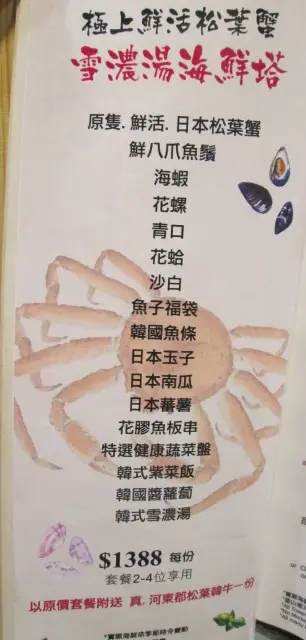 極上鮮活松葉蟹
雪濃湯海鮮塔
原隻. 鮮活. 日本松葉蟹
鮮八爪魚鬚
海蝦
花螺
青口
花蛤
沙白
魚子福袋
韓國魚條
日本玉子
日本南瓜
日本蕃薯
花膠魚板串
特選健康蔬菜盤
韓式紫菜飯
韓國醬蘿蔔
韓式雪濃湯
$1388 每份
套餐2-4位享用
以原價套餐附送 真. 河東郡松葉韓牛一份
*實際海鮮依季節時令變動